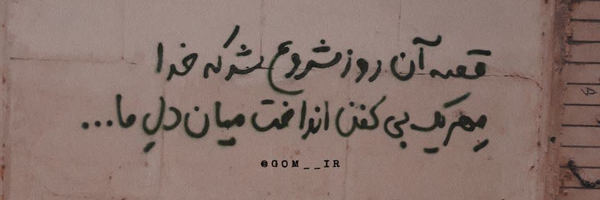 قصه آن روز شروع شد که خدا
مِهر یک بی کفن انداخت میان دلِ ما...
@GOM__IR